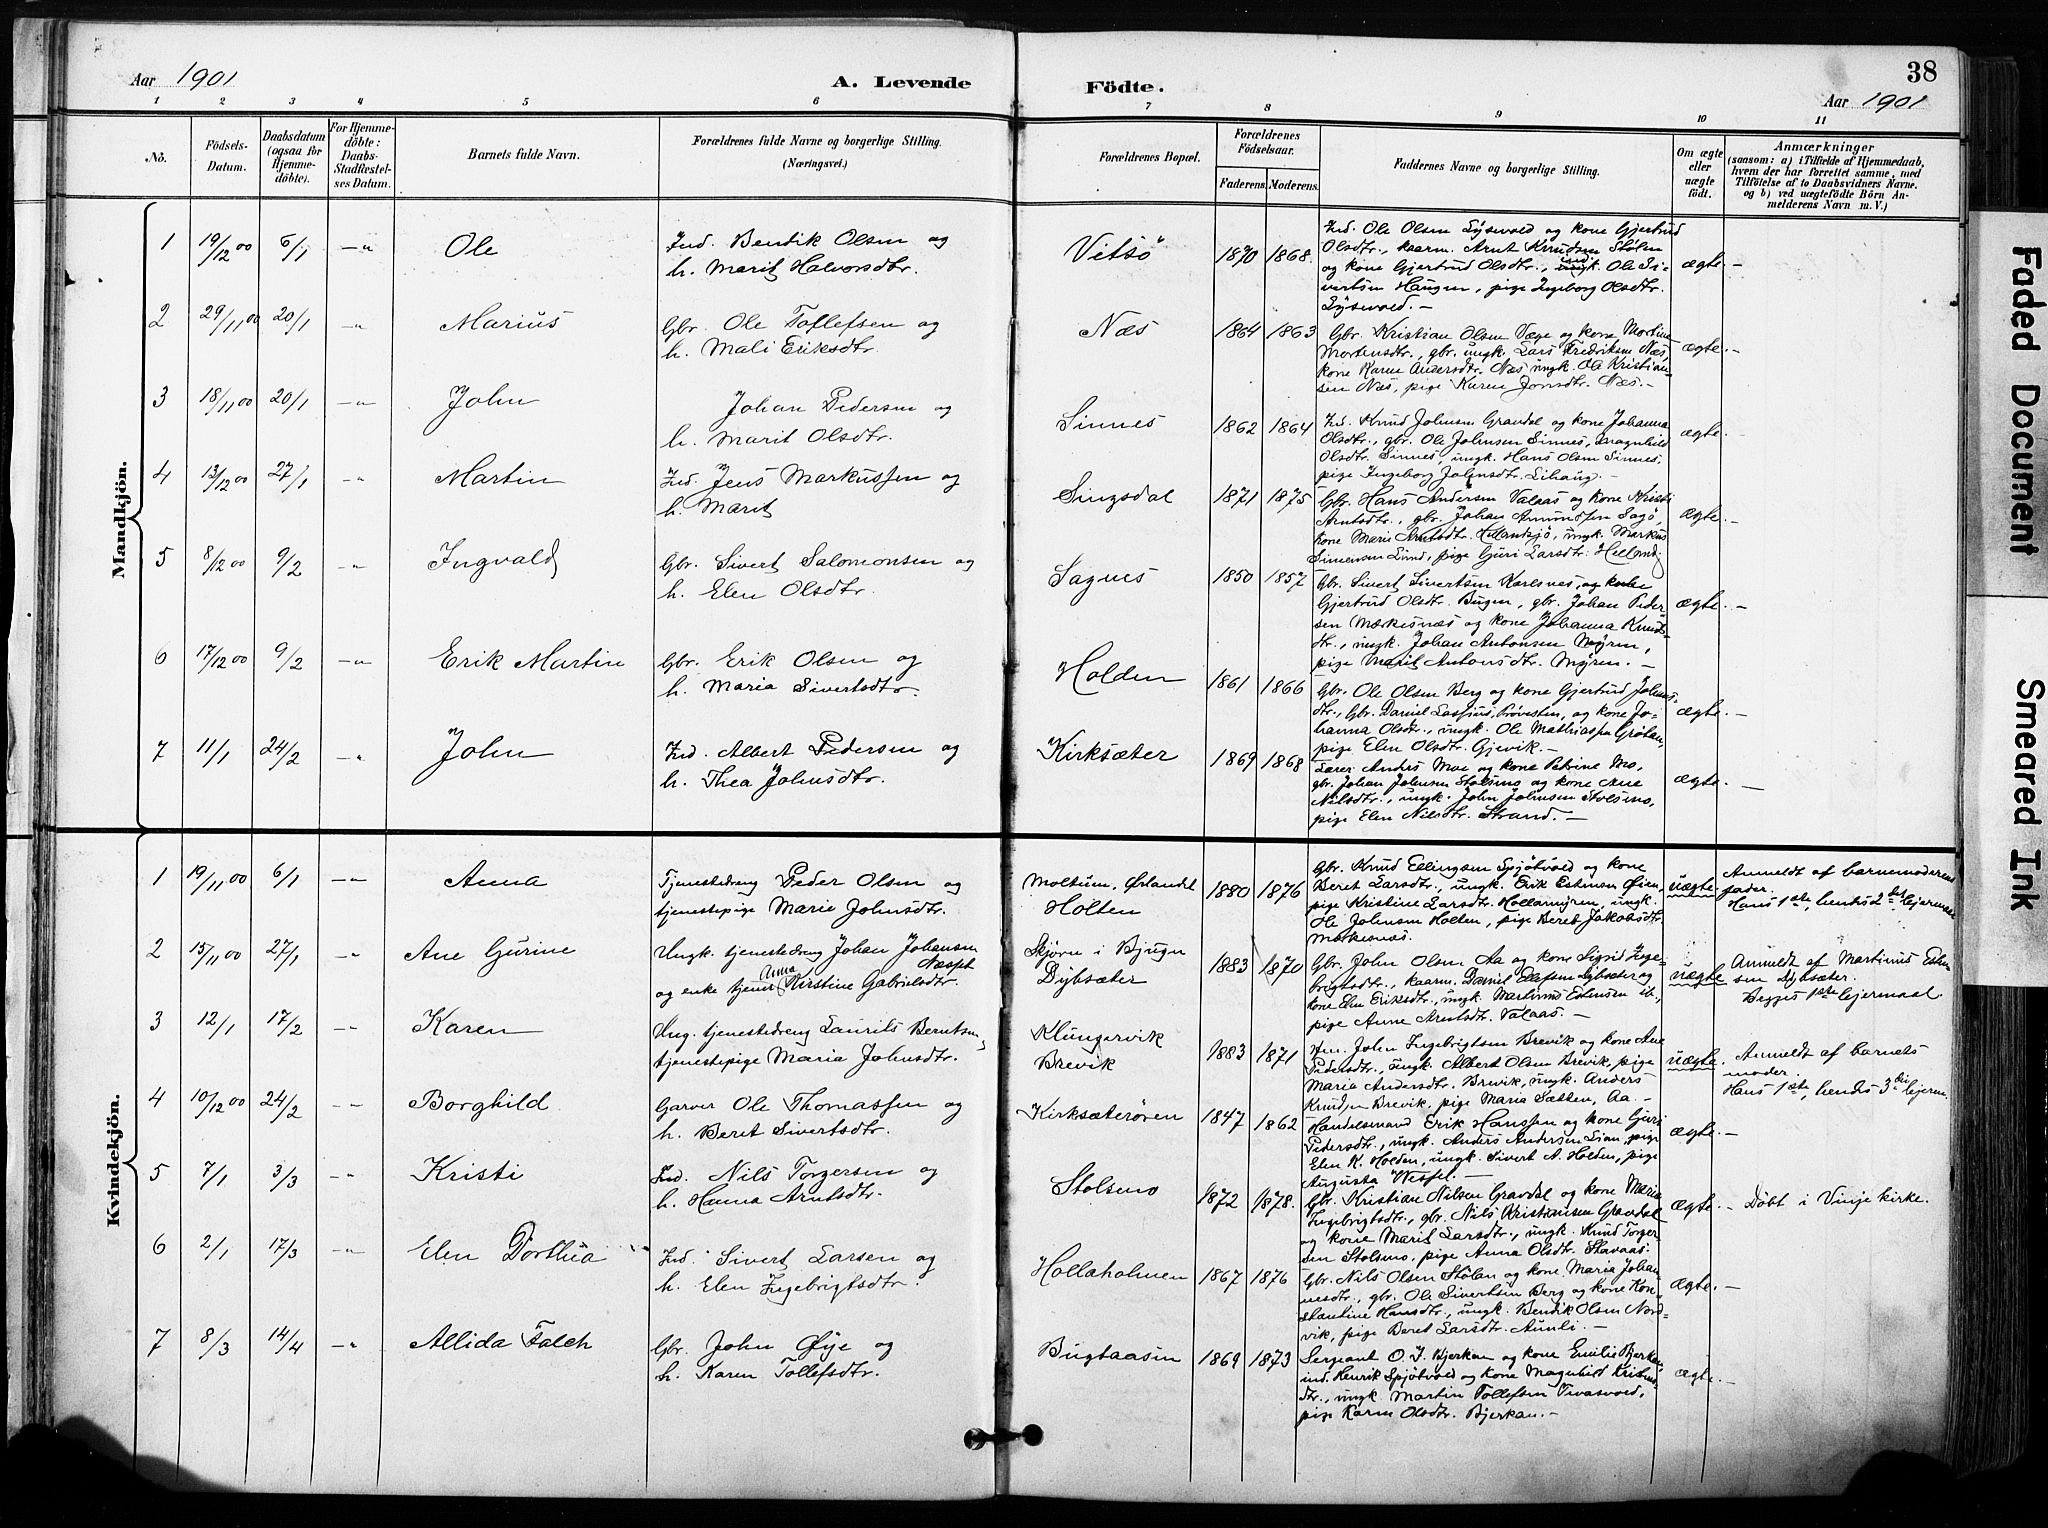 Aar 1901
A. Levende
Födte.
38
Aar 1901
1 2 3 4 5 6 7 8 9 10 11
No.
Födsels-
Datum.
Daabsdatum
(ogsaa for
Hjemme-
döbte).
For Hjemme-
döbte:
Daabs-
Stadfæstel-
ses Datum.
Barnets fulde Navn.
Forældrenes fulde Navne og borgerlige Stilling.
(Næringsvei.)
Forældrenes Bopæl.
Forældrenes
Födselsaar.
Faderens. Moderens.
Faddernes Navne og borgerlige Stilling.
Om ægte
eller
uægte
födt.
Anmærkninger
(saasom: a) i Tilfælde af Hjemmedaab,
hvem der har forrettet samme, med
Tilföielse af to Daabsvidners Navne.
og b) ved uægtefödte Börn An-
melderens Navn m. V.)
Mandkjön.
1 19/12 00 6/1 —" Ole
Ind. Bendik Olsen og
h. Marit Halvorsdtr.
Vitsö 1870 1868.
Ind. Ole Olsen Lysvold og kone Gjertrud
Olsdtr., kaarm. Arnt Knudsen Stølen
og kone Gjertrud Olsdtr., ungk. Ole Si-
vertsen Haugen, pige Ingeborg Olsdtr.
Lysvold. —
ægte. —
2 29/11 00 20/1 —" Marius
Gbr. Ole Toflefsen og
h. Mali Eriksdtr.
Næs 1864 1863
Gbr. Kristian Olsen Væge og kone Martine
Mortensdtr., gbr. ungk. Lars Fredriksen Næs,
kone Karen Andersdtr. Næs ungk. Ole Kristian-
sen Næs, pige Karen Jonsdtr. Næs. —
ægte. —
3 18/11 00 20/1 —" John
Johan Pedersen og
h. Marit Olsdtr.
Sinnes 1862 1864
Ind. Knud Johnsen Gravdal og kone Johanna
Olsdtr., gbr. Ole Johnsen Sinnes, Magnhild
Olsdtr. Sinnes, ungk. Hans Olsen Sinnes,
pige Ingeborg Johnsdtr. Lihaug. —
ægte. —
4 13/12 00 27/1 —" Martin
Ind. Jens Markussen og
h. Marit
Singsdal 1871 1875
Gbr. Hans Andersen Valaas og kone Kristi
Arntsdtr., gbr. Johan Amundsen Sagö,
kone Marie Arntsdtr. Hellandsjö, ungk. Markus
Simensen Lund, pige Guri Larsdtr. Helland.
ægte. —
5 8/12 00 9/2 —" Ingvald
Gbr. Sivert Salomonsen og
h. Elen Olsdtr.
Sagnes 1850 1857
Gbr. Sivert Sivertsen Karlsnes, og kone
Gjertrud Olsdtr. Bugen, gbr. Johan Peder-
sen Mærkesnæs og kone Johanna Knuds-
dtr., ungk. Johan Antonsen Myren,
pige Marit Antonsdtr. Myren. —
ægte. —
6 17/12 00 9/2 —" Erik Martin
Gbr. Erik Olsen og
h. Maria Sivertsdtr.
Holden 1861 1866
Gbr. Ole Olsen Berg og kone Gjertrud Johns-
dtr., Gbr. Daniel Lassius, Prövesten, og kone Jo-
hanna Olsdtr., ungk. Ole Mathiassen Grötan,
pige Elen Olsdtr. Gjevik. —
ægte. —
7 11/1 24/2 —" John
Ind. Albert Pedersen og
h. Thea Johnsdtr.
Kirksæter 1869 1868
Lærer Anders Moe og kone Petrine Mo,
gbr. Johan Johnsen Stolsmo og kone Ane
Nilsdtr., ungk. John Johnsen Stolsmo,
pige Elen Nilsdtr. Strand. —
ægte. —
Kvindekjön.
1 19/11 00 6/1 —" Anna
Tjenestedreng Peder Olsen og
tjenestepige Marie Johnsdtr.
Moltum, Ørlandet
Holten 1880 1876
Gbr. Knud Ellingsen Spjötvold og kone
Beret Larsdtr., ungk. Erik Estensen Øien,
pige Kristine Larsdtr. Hollamyren, ungk.
Ole Johnsen Holten, pige Beret Jakobsdtr.
Mærkesnæs.
uægte.
Anmeldt af barnemoderens
fader.
Hans 1ste, hendes 2det lejermaal
2 15/11 00 27/1 —" Ane Gurine
Ungk. tjenestedreng Johan Johansen
Næsset
og enke tjener Anna Kirstine Gabrielsdtr.
Skjörn i Bjugn
Dybsæter 1883 1870
Gbr. John Olsen Aa og kone Sigrid Inge-
brigtsdtr., kaarm. Daniel Olefsen Dybsæter og
kone Elen Eriksdtr., ungk. Martinus Estensen ib.,
pige Anne Arntsdtr. Valaas. —
uægte
Anmeldt af Martinus Esten-
sen Dybsæter.
Begges 1ste lejermaal.
3 12/1 17/2 —" Karen
Ung. tjenestedreng Laurits Berntsen,
tjenestepige Maria Johnsdtr.
Klungervik
Brevik 1883 1871
Hm. John Ingebrigtsen Brevik og kone Ane
Pedersdtr., ungk. Albert Olsen Brevik, pige
Maria Andersdtr. Brevik, ungk. Anders
Knudsen Brevik, pige Maria Sætten, Aa. —
uægte.
Anmeldt af barnets
moder.
Hans 1ste, hendes 3die lejerm.
4 10/12 00 24/2 —— Borghild
Garver Ole Thomassen og
h. Beret Sivertsdtr.
Kirksæterören 1847 1862
Handelsmand Erik Hanssen og kone Guri
Pedersdtr., ungk. Anders Andersen Lian, pige
Elen K. Holden, ungk. Sivert A. Holden, pige
Augusta Wessel. —
ægte. —
5 7/1 3/3 —" Kristi
Ind. Nils Torgersen og
h. Hanna Arntsdtr.
Stolsmo 1872 1878.
Gbr. Kristian Nilsen Gravdal og kone Maria
Ingebrigtsdtr., gbr. Nils Kristiansen Gravdal
og kone Marit Larsdtr., ungk. Knud Torger-
sen Stolsmo, pige Anna Olsdtr. Stavaas.
ægte. — Döbt i Vinje kirke.
6 2/1 17/3 —" Elen Dorthea
Ind. Sivert Larsen og
h. Elen Ingebrigtsdtr.
Hollaholmen 1867 1876
Gbr. Nils Olsen Stölan og kone Maria Johan-
nesdtr., gbr. Ole Sivertsen Berg og kone Kon-
stantine Hansdtr., ungk. Bendik Olsen Nord-
vik, pige Beret Larsdtr. Aunli. —
ægte. —
7 8/3 14/4 —" Allida Falch
Gbr. John Øye og
h. Karen Tollefsdtr.
Bugtaasen 1869 1873
Sergeant O. J. Bjerkan og kone Emilie Bjerkan,
ind. Henrik Spjötvold og kone Magnhild Kristens-
dtr., ungk. Martin Tollefsen Tevasvold,
pige Karen Olsdtr. Bjerkan. —
ægte. —
Faded Document
Smeared Ink